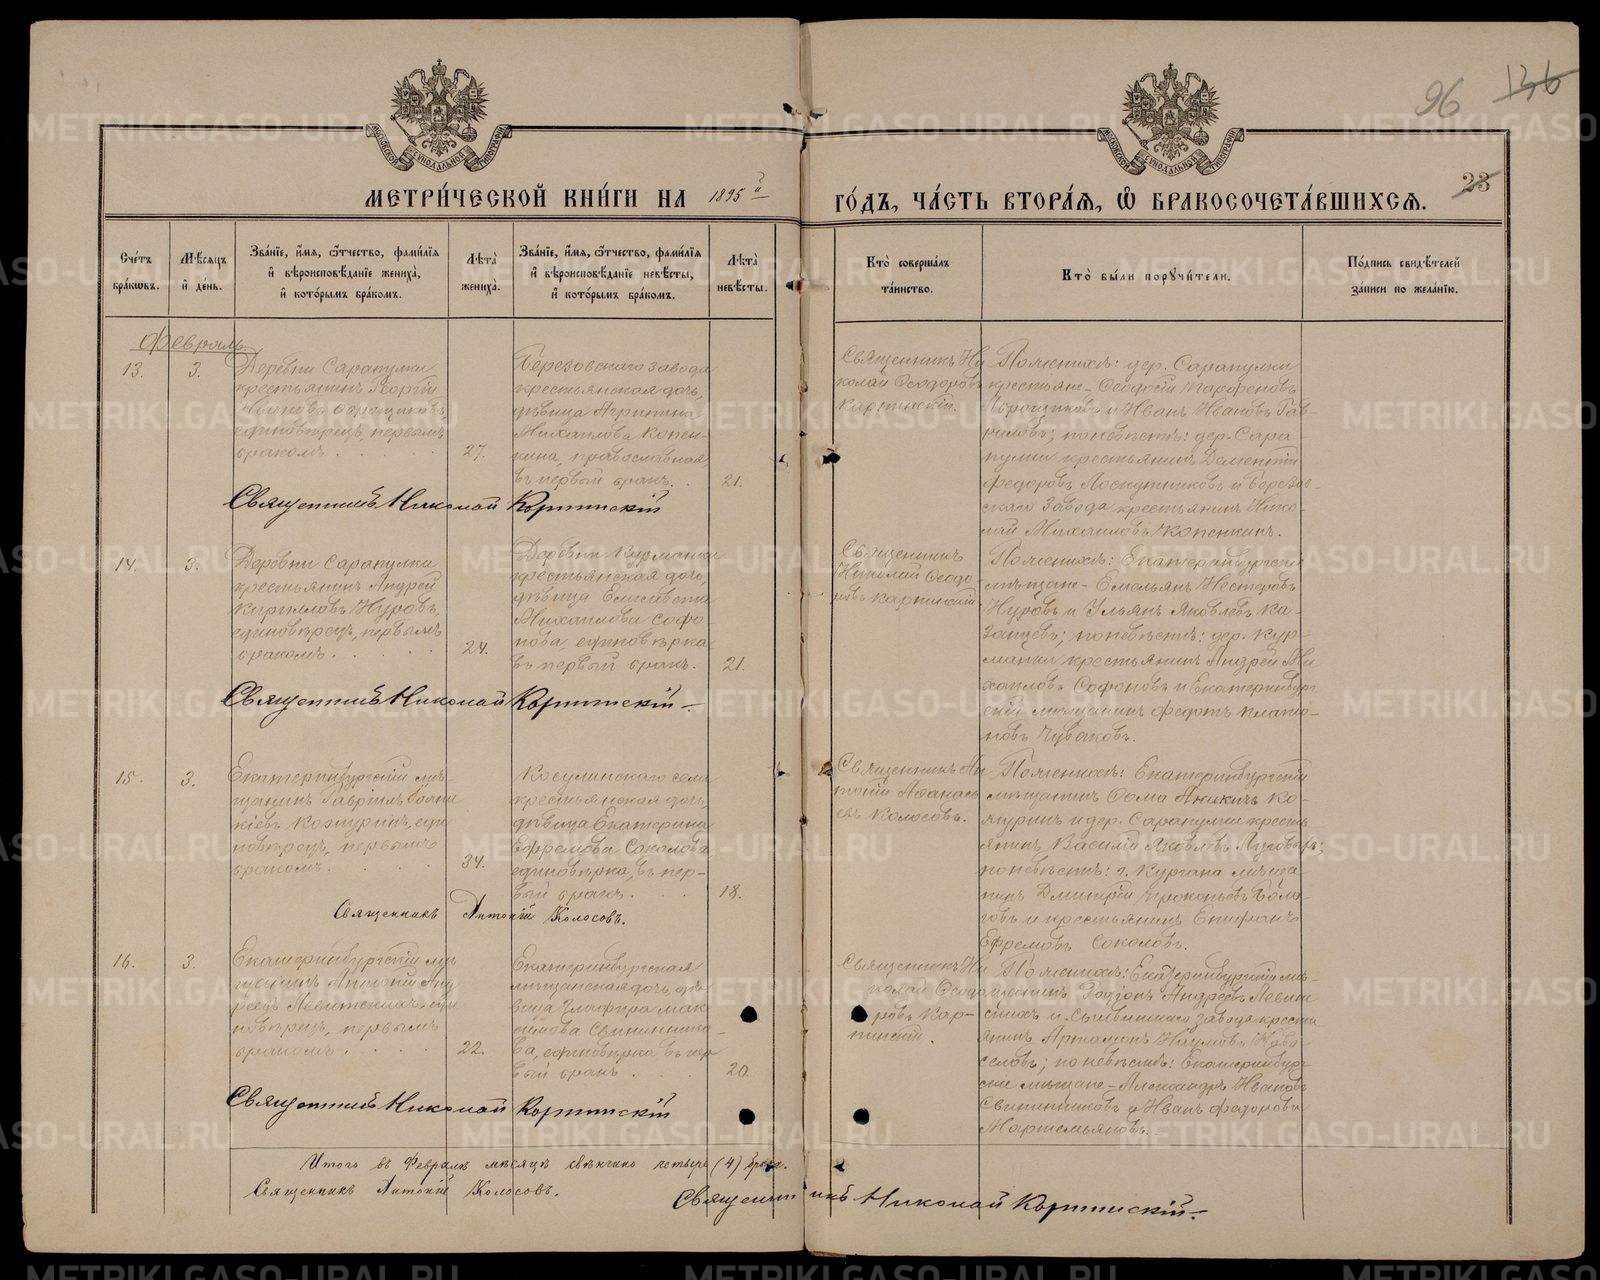 96 136
МОСКОВСКОЙ СѴНОДАЛЬНОЙ ТИПОГРАФІИ
МОСКОВСКОЙ СѴНОДАЛЬНОЙ ТИПОГРАФІИ
23
МЕТРИ́ЧЕСКОЙ КНИ́ГИ НА 1895 й
ГО́ДЪ, ЧА́СТЬ ВТОРА́Я, Ѿ БРАКОСОЧЕТА́ВШИХСЯ.
Сче́тъ бра́ковъ.
Мѣ́сяцъ и҆ де́нь.
Зва́нїе, и҆́мя, ѻ҆́тчество, фами́лїя и҆ вѣроисповѣ́данїе жениха̀, и҆ кото́рымъ бра́комъ.
Лѣта̀ жениха̀.
Зва́нїе, и҆́мя, ѻ҆́тчество, фами́лїя и҆ вѣроисповѣ́данїе невѣ́сты, и҆ кото́рымъ бра́комъ.
Лѣта̀ невѣ́сты.
Кто̀ соверша́лъ та́инство.
Кто̀ бы́ли поручи́тели.
По́дпись свидѣ́телей за́писи по жела́нїю.
Февраль
13.
3.
Деревни Сарапулки
крестьянинъ Георгій
Ивановъ
единовѣрецъ, первымъ
бракомъ
27.
Березовскаго завода
крестьянская дочь,
дѣвица
Михаилова Копен-
кина, православная
въ первый бракъ.
21.
Священникъ Ни
колай Ѳеодоровъ
Карпинскій.
По женихѣ: дер. Сарапулки
крестьяне – Ѳеодосій
и Иванъ Ивановъ Гав-
риловъ; по невѣстѣ: дер. Сара-
пулки крестьянинъ Дементій
Федоровъ Лоскутниковъ и Березов-
скаго Завода крестьянинъ Нико-
лай Михаиловъ Копенкинъ.
Священникъ Николай Карпинскій
14.
3.
Деревни Сарапулки
крестьянинъ Андрей
Кирилловъ Нуровъ,
единовѣрецъ, первымъ
бракомъ
24.
Деревни Курманки
крестьянская дочь,
дѣвица Елисавета
Михаилова Софо-
нова, единовѣрка
въ первый бракъ.
21.
Священникъ
Николай Ѳеодо-
ровъ Карпинскій
По женихѣ: Екатеринбургскіе
мѣщане – Емельянъ Нестеровъ
Нуровъ и Ульянъ Яковлевъ Ка-
занцевъ; по невѣстѣ: дер. Кур-
манки крестьянинъ Андрей Ми
хаиловъ Софоновъ и Екатеринбург
скій мѣщанинъ Федотъ Плато-
новъ Чуваковъ.
Священникъ Николай Карпинскій
15.
3.
Екатеринбургскій мѣ-
щанинъ Гавріилъ
единовѣрецъ, первымъ
бракомъ.
34.
Косулинскаго села
крестьянская дочь,
дѣвица Екатерина
Ефремова Соколова,
единовѣрка, въ пер-
вый бракъ.
18.
Священникъ Ан
тоній Аѳанась
евъ Колосовъ.
По женихѣ: Екатеринбургскій
мѣщанинъ Ѳома
и дер. Сарапулки кресть
янинъ Василій Яковлевъ
по невѣстѣ: г. Кургана мѣща
нинъ Дмитрій Прокопьевъ
и крестьянинъ Епифанъ
Ефремовъ Соколовъ.
Священникъ Антоній Колосовъ.
16.
3.
Екатеринбургскій мѣ
щанинъ Антоній Анд
реевъ Левитскихъ, еди
новѣрецъ, первымъ
бракомъ
22.
Екатеринбургская
мѣщанская дочь, дѣ-
вица Глафира Мак-
симова Свинъникова
единовѣрка въ пер
вый бракъ
20.
Священникъ Ни
колай Ѳеодо
ровъ Кар-
пинскій.
По женихѣ: Екатеринбургскій мѣ
щанинъ Родіонъ Андреевъ Левит
скихъ и завода кресть
янинъ Артамонъ Наумовъ
по невѣстѣ: Екатеринбург-
скіе мѣщане – Александръ Ивановъ
и Иванъ Федоровъ
Мартемьяновъ.
Священникъ Николай Карпинскій
Итого въ Февралѣ мѣсяцѣ свѣнчано четыре (4) брака.
Священникъ Антоній Колосовъ.
Священникъ Николай Карпинскій
METRIKI.GASO-URAL.RU